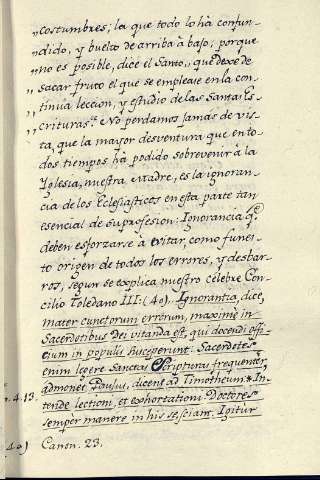 „costumbres; la que todo lo ha confun-
„dido, y buelto de arriba à bajo; porque
„no es posible, dice el Santo, que dexe de
„sacar fruto el que se empleare en la con-
„tinua leccion, y estudio de las Santas Es-
„crituras.“ No perdamos jamas de vis-
ta, que la mayor desventura que en to-
dos tiempos ha podido sobrevenir à la
Iglesia, nuestra Madre, es la ignoran-
cia de los Eclesiasticos en esta parte tan
esencial de su profesion: Ignorancia q.e
deben esforzarse à evitar, como funes-
to origen de todos los errores, y desbar-
ros, segun se explica nuestro celebre Con-
cilio Toledano III: (40). Ignorantia, dice,
mater cunctorum errorum, maximè in
Sacerdotibus Dei vitanda est, qui docendi offi-
cium in populis susceperunt. Sacerdotes
enim legere Sanctas Scripturas frequenter,
admonet Paulus, dicens ad Timotheum: In-
4.13. tende lectioni, et exhortationi Doctores
semper manere in his sesciam. Igitur
40) Canon. 23.